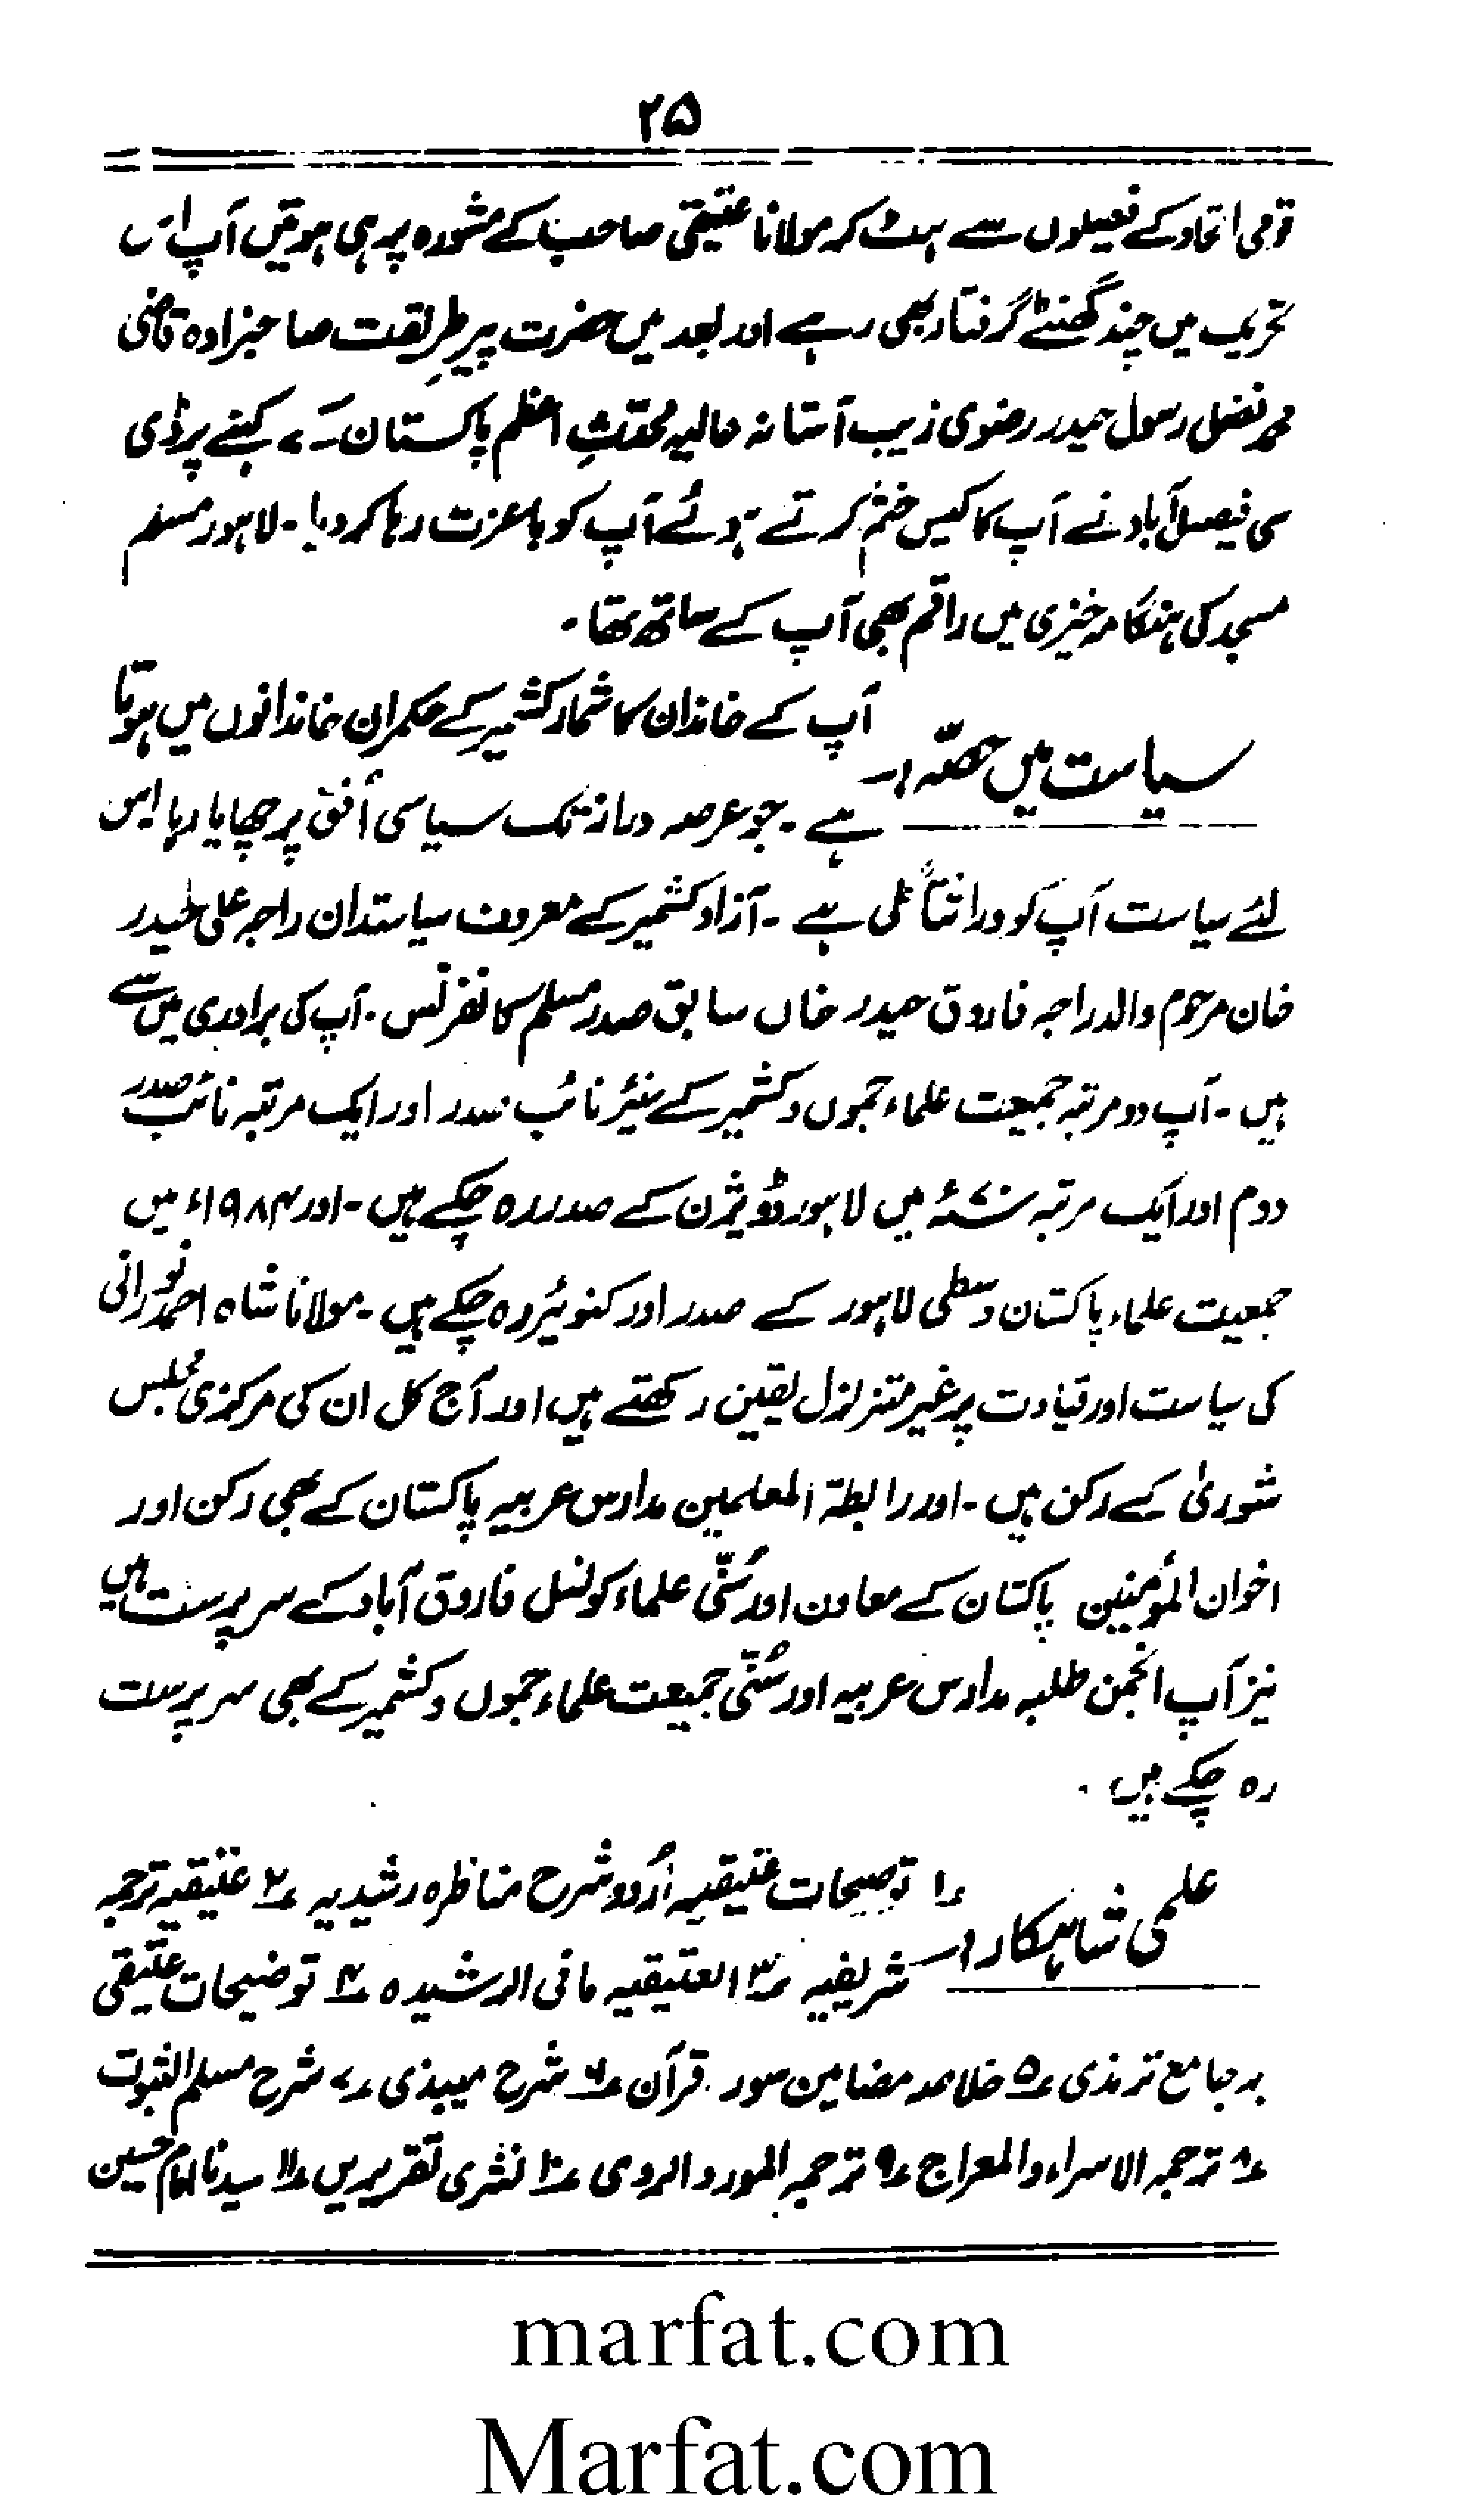 ۲۵
قومی اتحاد کے فیصلوں سے ہٹ کر مولانا عتیقی صاحب کے مشورہ پر ہی ہوتیں آپ اس
تحریک میں چند گھنٹے گرفتار بھی رہے اور بعد میں حضرت پیر طریقت صاحبزادہ قاضی
محمد فضل رسول حیدر رضوی زیب آستانہ عالیہ محدثِ اعظم پاکستان کے کہنے پر ڈی
سی فیصل آباد نے آپ کا کیس ختم کرتے ہوئے آپ کو باعزت رہا کر دیا۔ لاہور مسلم
مسجد کی ہنگامہ خیزی میں راقم بھی آپ کے ساتھ تھا۔
سیاست میں حصّہ :۔ آپ کے خاندان کا شمار کشمیر کے حکمران خاندانوں میں ہوتا
ہے۔ جو عرصہ دراز تک سیاسی اُفق پر چھایا رہا اس
لئے سیاست آپ کو وراثتاً ملی ہے۔ آزاد کشمیر کے معروف سیاستدان راجہ علی حیدر
خان مرحوم والد راجہ فاروق حیدر خاں سابق صدر مسلم کانفرنس۔ آپ کی برادری میں سے
ہیں۔ آپ دو مرتبہ جمیعت علماء جموں و کشمیر کے سنیئر نائب صدر اور ایک مرتبہ نائب صدر
دوم اور ایک مرتبہ میں لاہور ڈویژن کے صدر رہ چکے ہیں۔ اور ۱۹۸۴ء میں
جمعیت علماء پاکستان وسطی لاہور کے صدر اور کنوئیر رہ چکے ہیں۔ مولانا شاہ احمد نورانی
کی سیاست اور قیادت پر غیر متزلزل یقین رکھتے ہیں اور آج کل ان کی مرکزی مجلس
شوریٰ کے رکن ہیں۔ اور رابطۃ المعلمین مدارس عربیہ پاکستان کے بھی رکن اور
اخوان المؤمنین پاکستان کے معاون اور سُنّی علماء کونسل فاروق آباد کے سرپرست ہیں
نیز آپ انجمن طلبہ مدارس عربیہ اور سُنّی جمیعت علماء جموں و کشمیر کے بھی سرپرست
رہ چکے ہیں۔
علمی شاہکار :۔ ۱؍ توضیحات عتیقیہ اُردو شرح مناظرہ رشیدیہ ۲؍ عتیقیہ ترجمہ
شریفیہ ۳؍ العتیقیہ مافی الرشیدہ ۴؍ توضیحات عتیقی
بر جامع ترمذی ۵؍ خلاصہ مضامین سور قرآن ۶؍ شرح میبذی ۷؍ شرح مسلم الثبوت
۸؍ ترجمہ الاسراء والمعراج ۹؍ ترجمہ المورد الروی ۱۰؍ نشری تقریریں ۱۱؍ سیدنا امام حسین
marfat.com
Marfat.com